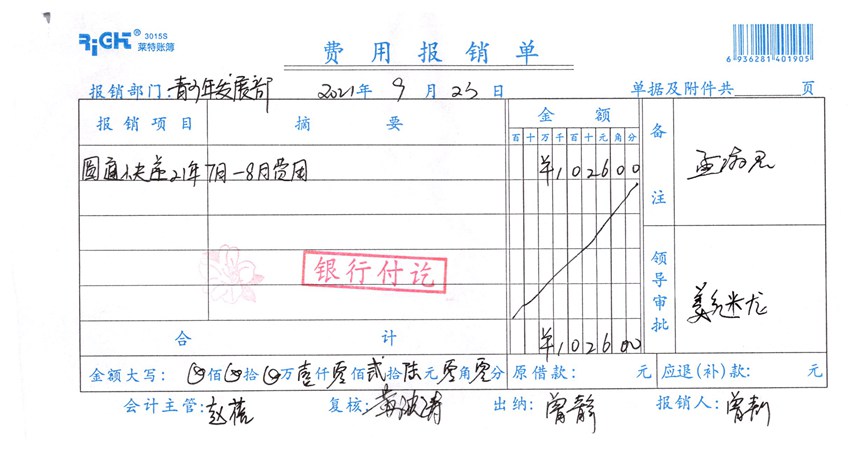 RiGHT® 3015S
莱特账簿
费用报销单
6 936281 401905
报销部门:青少年发展部 2021年 9月 23日 单据及附件共 页
报销项目 摘要 金额 备注
百十万千百十元角分
圆通快递21年7月-8月费用 ¥102600
银行付讫
领导审批
合计 ¥102600
金额大写: 佰 拾 万壹仟零佰贰拾陆元零角零分 原借款: 元 应退(补)款: 元
会计主管:赵蓓 复核: 出纳:曾静 报销人:曾